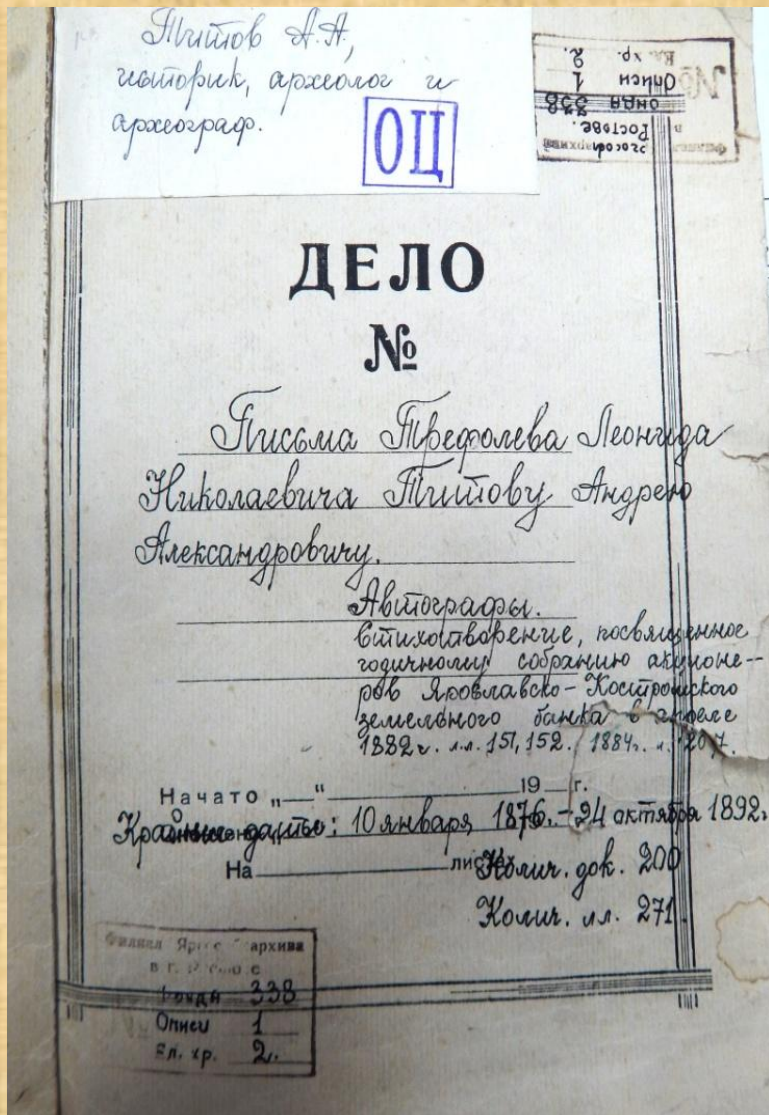 Титов А.А,
историк, археолог и
археограф.
ОЦ
в
Ростове.
338
№
Описи 1
Ед. хр. 2.
ДЕЛО
№
Письма Трефолева Леонида
Николаевича Титову Андрею
Александровичу.
Автографы.
Стихотворение, посвященное
годичному собранию акционе-
ров Ярославско-Костромского
земельного банка в апреле
1882г. л.л. 151, 152. 1884г. л. 207.
Начато „—“ 19 г.
Крайние даты: 10 января 1876.-24 октября 1892г
На листах Колич. док. 200
Колич. лл. 271.
Филиал архива
в г.
Фонда 338
Описи 1
Ед. хр. 2.